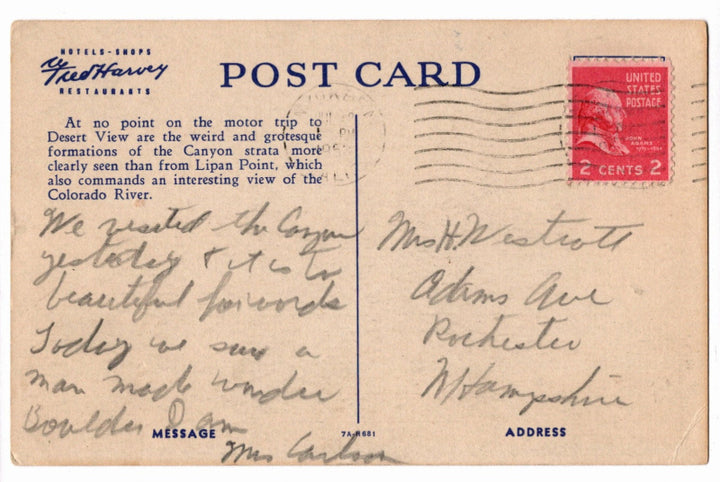 HOTELS - SHOPS
Fred Harvey
RESTAURANTS
POST CARD
UNITED
STATES
POSTAGE
JOHN
ADAMS
2 CENTS 2
At no point on the motor trip to
Desert View are the weird and grotesque
formations of the Canyon strata more
clearly seen than from Lipan Point, which
also commands an interesting view of the
Colorado River.
We visited the Canyon
yesterday & it is too
beautiful for words
Today we saw a
man made wonder
Boulder Dam
Mrs Carlson
Mrs H Westcott
Adams Ave
Rochester
N Hampshire
MESSAGE
7A-H681
ADDRESS